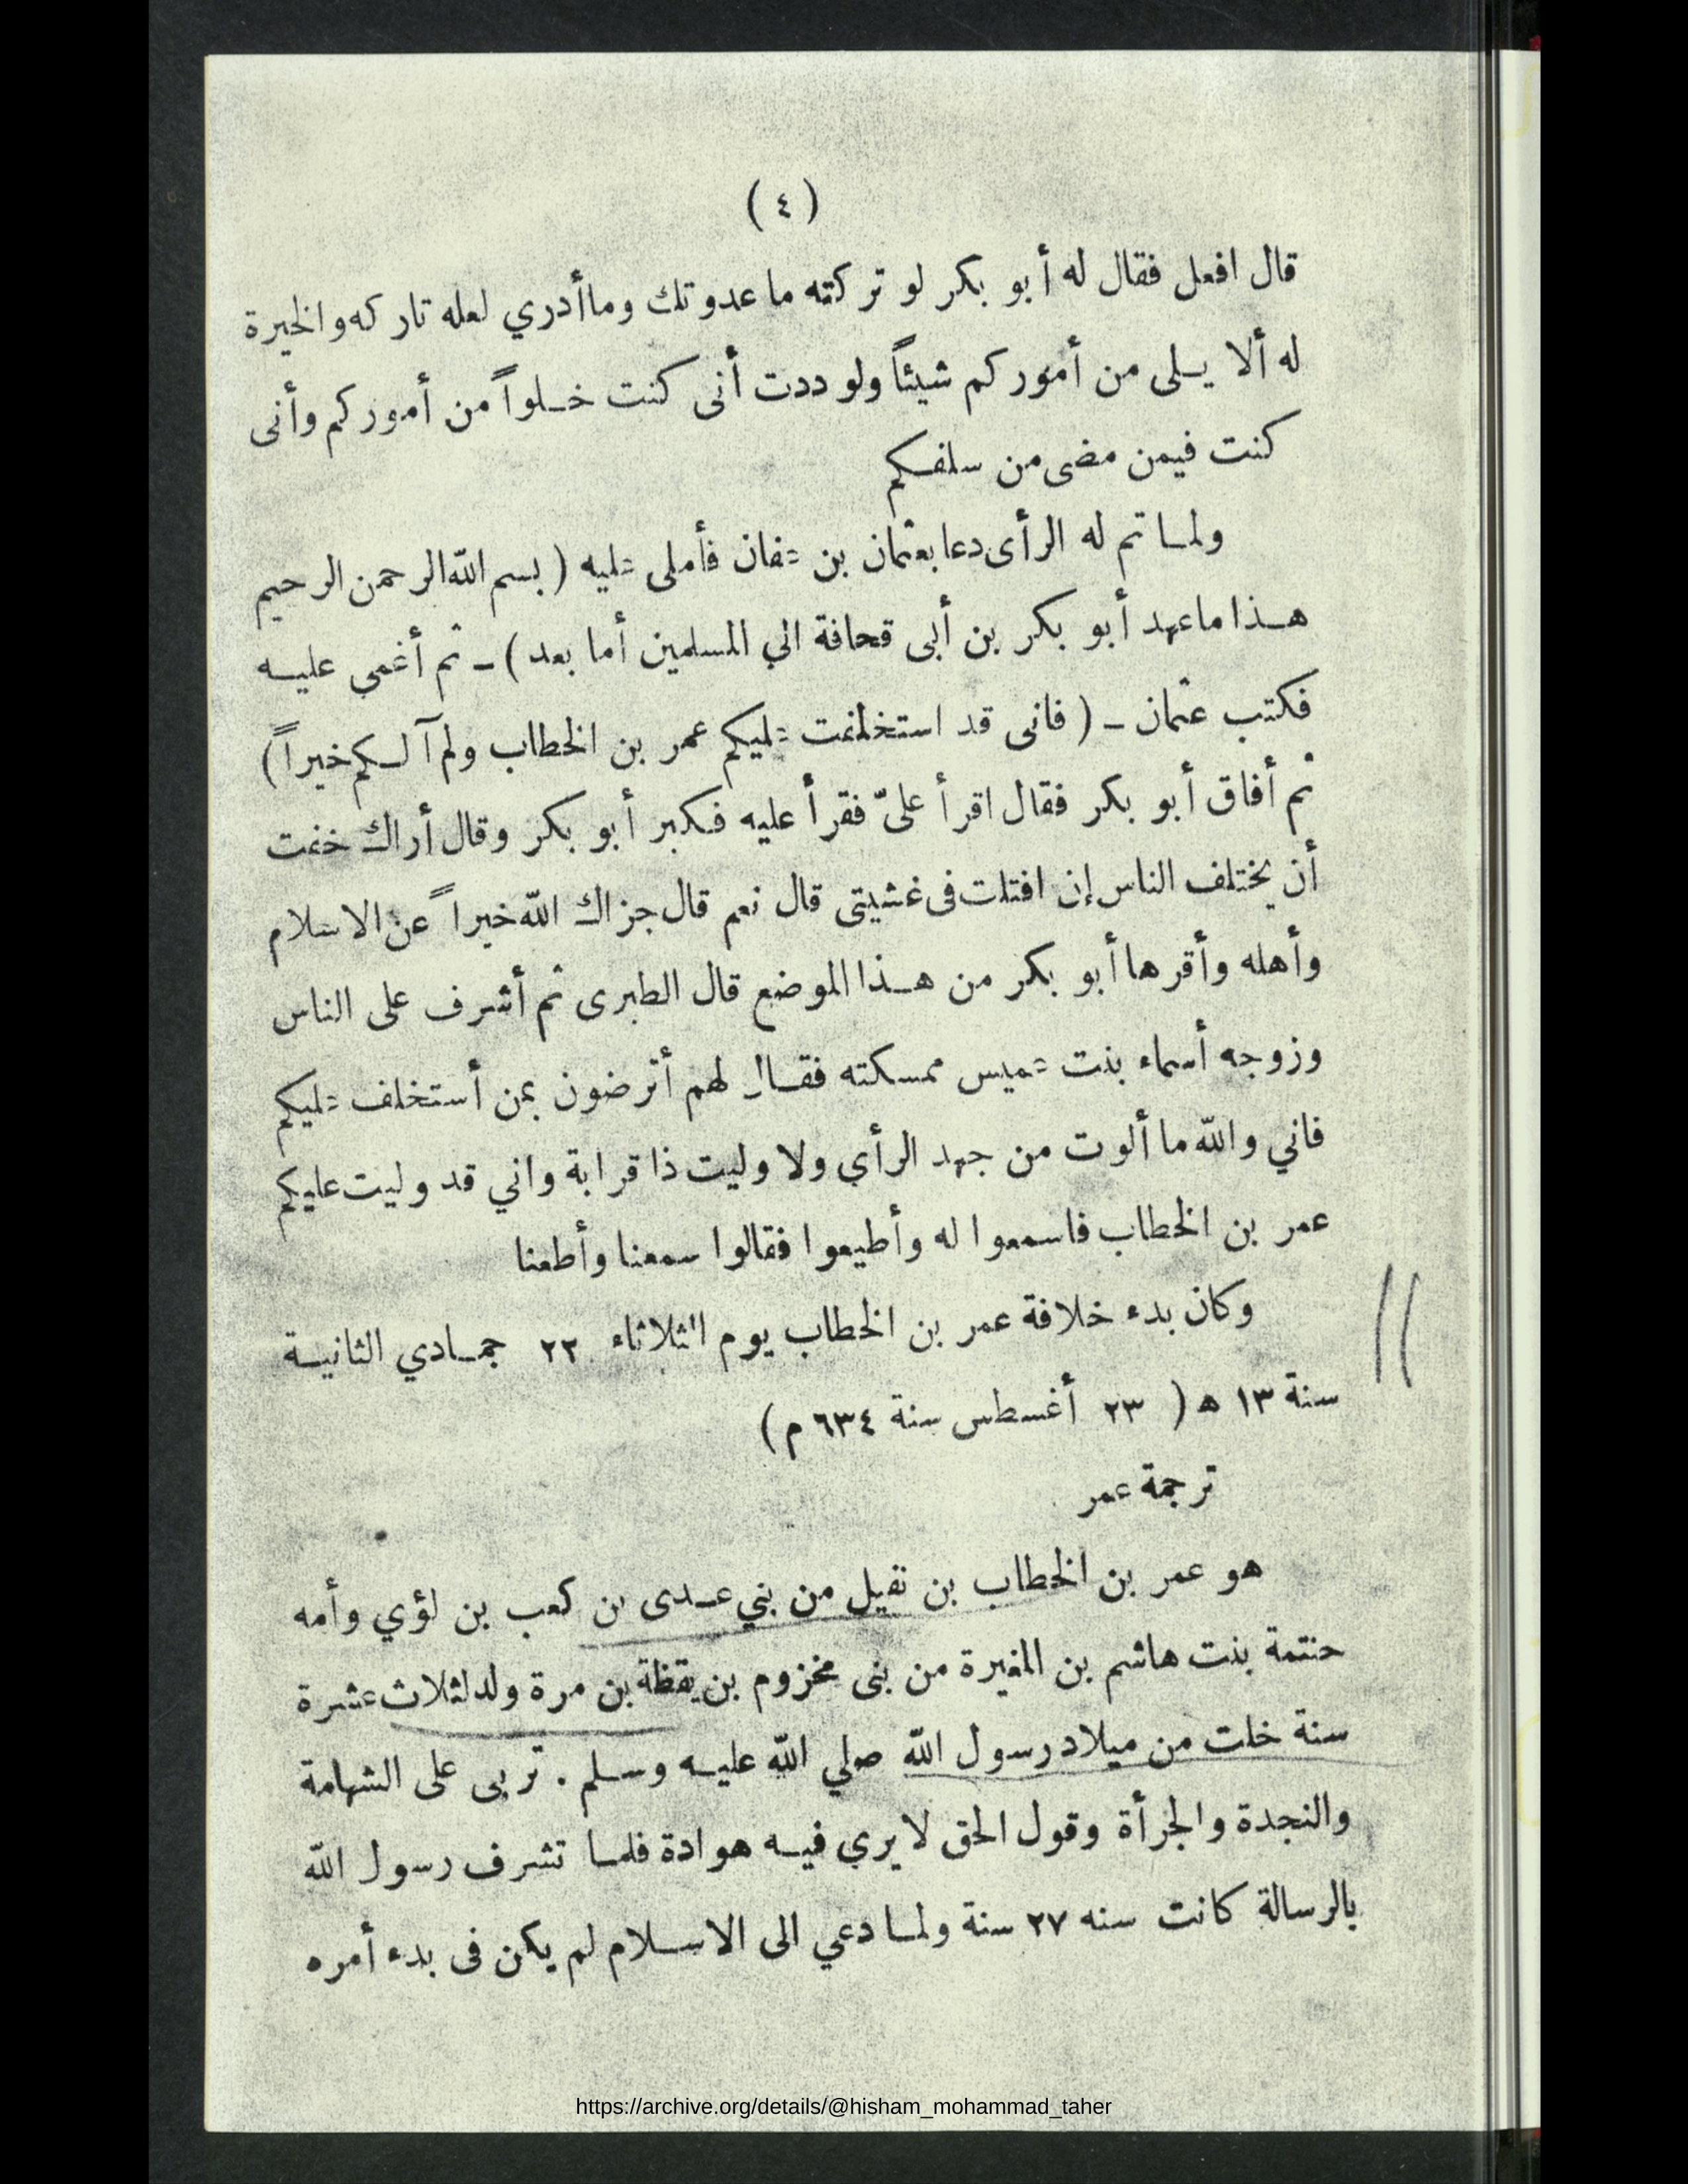 (٤)
قال افعل فقال له أبو بكر لو تركته ما عدوتك وما أدري لعله تاركه والخيرة
له ألا يـلى من أموركم شيئاً ولوددت أنى كنت خـلواً من أموركم وأنى
كنت فيمن مضى من سلفـكم
ولمـا تم له الرأى دعا بعثمان بن عفان فأملى عليه ( بسم الله الرحمن الرحيم
هـذا ما عهد أبو بكر بن أبى قحافة الي المسلمين أما بعد ) ـ ثم أغمى عليـه
فكتب عثمان ـ ( فانى قد استخلفت عليكم عمر بن الخطاب ولم آلـكم خيراً )
ثم أفاق أبو بكر فقال اقرأ علىّ فقرأ عليه فـكبر أبو بكر وقال أراك خفت
أن يختلف الناس إن افتلت فى غشيتى قال نعم قال جزاك الله خيراً عن الاسلام
وأهله وأقرها أبو بكر من هـذا الموضع قال الطبرى ثم أشرف على الناس
وزوجه أسماء بنت عميس ممسكته فقـال لهم أترضون بمن أستخلف عليكم
فاني والله ما ألوت من جهد الرأي ولا وليت ذا قرابة واني قد وليت عليكم
عمر بن الخطاب فاسمعوا له وأطيعوا فقالوا سمعنا وأطعنا
وكان بدء خلافة عمر بن الخطاب يوم الثلاثاء ٢٢ جمـادي الثانيـة
سنة ١٣ ه ( ٢٣ أغسطس سنة ٦٣٤ م )
ترجمة عمر
هو عمر بن الخطاب بن نفيل من بني عـدى بن كعب بن لؤي وأمه
حنتمة بنت هاشم بن المغيرة من بنى مخزوم بن يقظة بن مرة ولد لثلاث عشرة
سنة خلت من ميلاد رسول الله صلي الله عليـه وسـلم . تربى على الشهامة
والنجدة والجرأة وقول الحق لا يري فيـه هوادة فلمـا تشرف رسول الله
بالرسالة كانت سنه ٢٧ سنة ولمـا دعي الى الاسـلام لم يكن فى بدء أمره
https://archive.org/details/@hisham_mohammad_taher